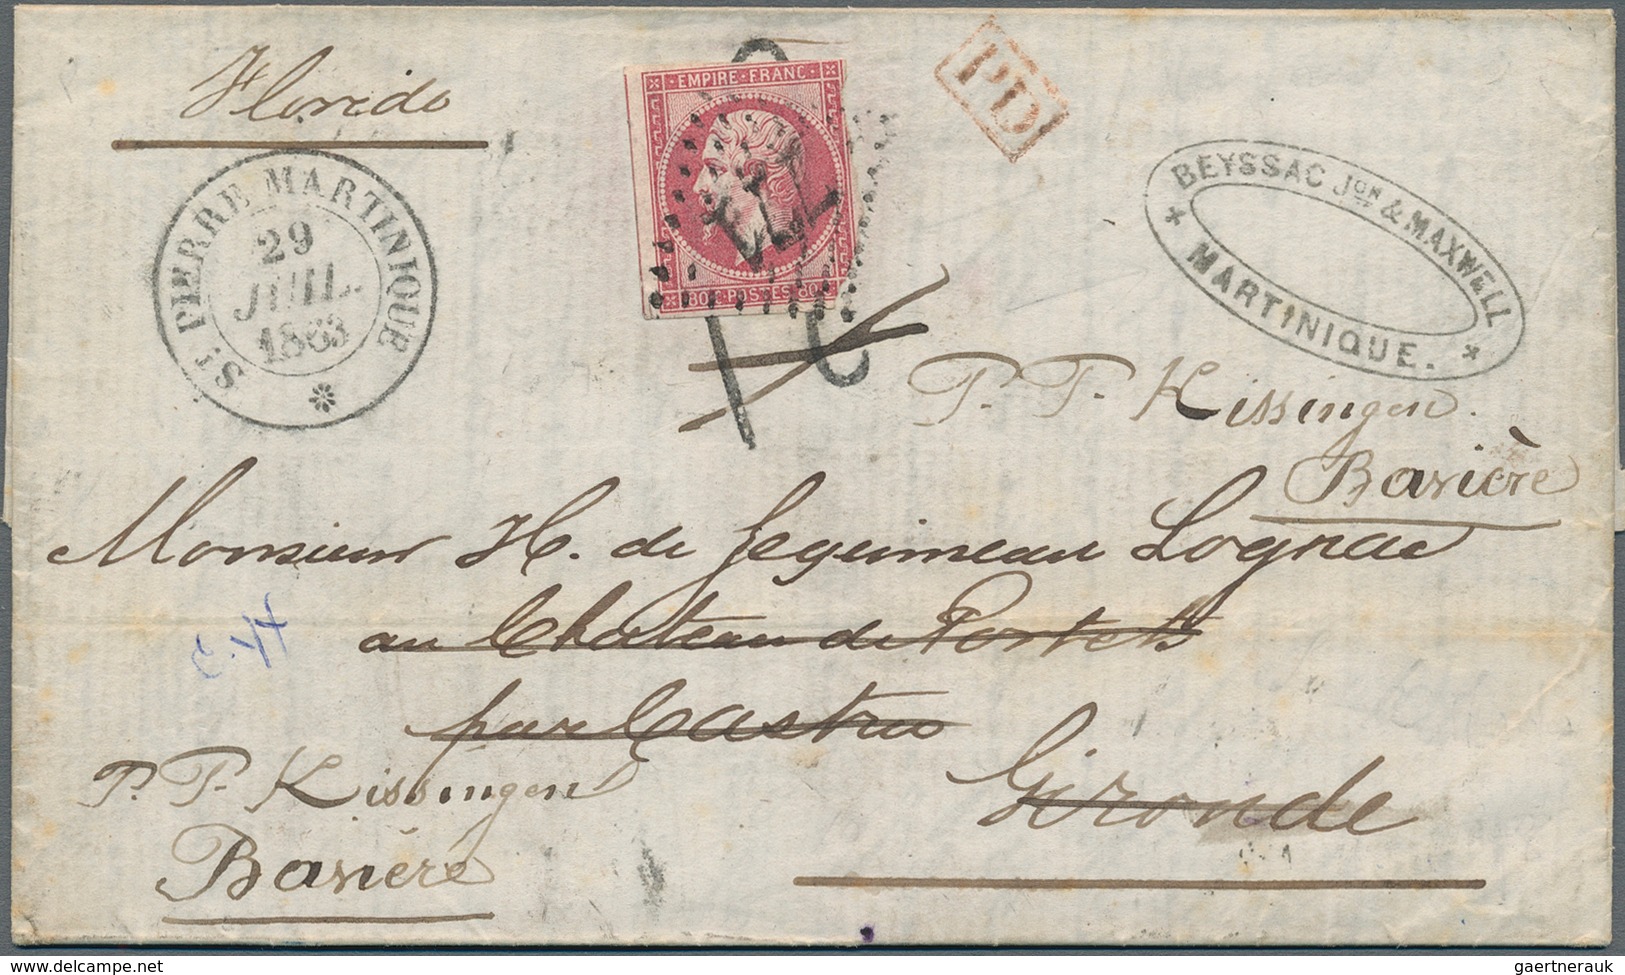 Floride
ST PIERRE MARTINIQUE
29
JUIL.
1863
EMPIRE FRANC
80c POSTES 80c
PD
BEYSSAC Jon & MAXWELL
MARTINIQUE.
P. P. Kissingen.
Bavière
Monsieur H. de Jeguimeau Lognac
au Chateau de Portets
par Castres
Gironde
P. P. Kissingen
Bavière
gaertnerauk